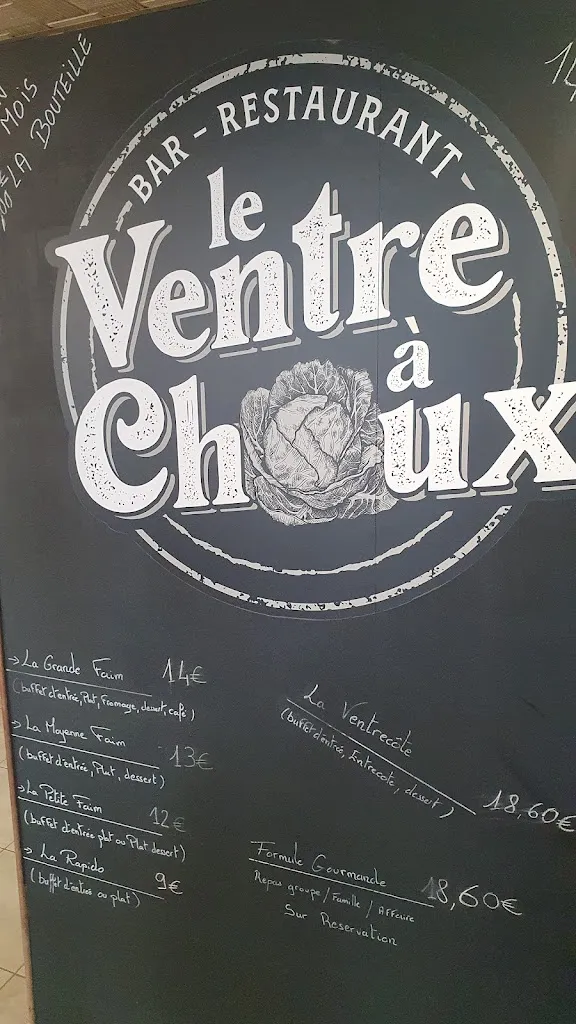 MOIS
LA BOUTEILLE
14
BAR - RESTAURANT
le
Ventre
à
Choux
→ La Grande Faim 14€
(buffet d'entrée, Plat, fromage, dessert, café)
→ La Moyenne Faim 13€
(buffet d'entrée, Plat, dessert)
→ La Petite Faim 12€
(buffet d'entrée plat ou Plat dessert)
→ La Rapido 9€
(buffet d'entrée ou plat)
La Ventrecôte
(buffet d'entrée, Entrecote, dessert) 18,60€
Formule Gourmande 18,60€
Repas groupe / Famille / Affaire
Sur Reservation